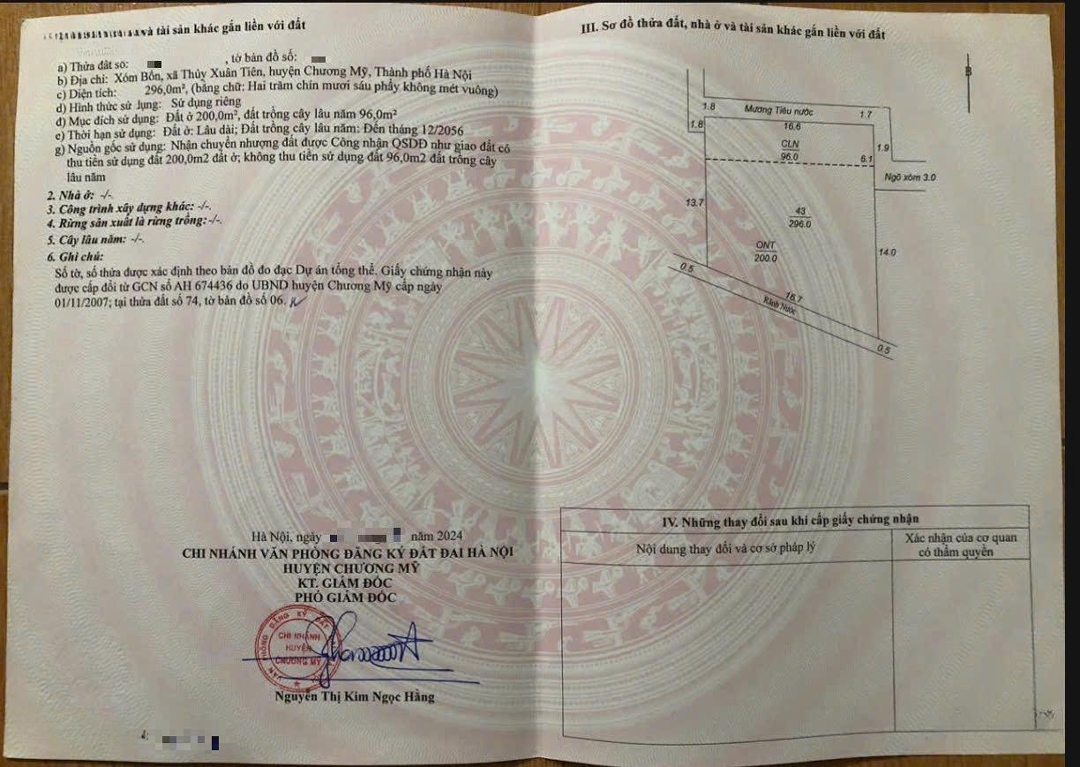 và tài sản khác gắn liền với đất
a) Thửa đất số: , tờ bản đồ số:
b) Địa chỉ: Xóm Bốn, xã Thủy Xuân Tiên, huyện Chương Mỹ, Thành phố Hà Nội
c) Diện tích: 296,0m², (bằng chữ: Hai trăm chín mươi sáu phẩy không mét vuông)
d) Hình thức sử dụng: Sử dụng riêng
đ) Mục đích sử dụng: Đất ở 200,0m², đất trồng cây lâu năm 96,0m²
e) Thời hạn sử dụng: Đất ở: Lâu dài; Đất trồng cây lâu năm: Đến tháng 12/2056
g) Nguồn gốc sử dụng: Nhận chuyển nhượng đất được Công nhận QSDĐ như giao đất có
thu tiền sử dụng đất 200,0m2 đất ở; không thu tiền sử dụng đất 96,0m2 đất trồng cây
lâu năm
2. Nhà ở: -/-.
3. Công trình xây dựng khác: -/-.
4. Rừng sản xuất là rừng trồng: -/-.
5. Cây lâu năm: -/-.
6. Ghi chú:
Số tờ, số thửa được xác định theo bản đồ đo đạc Dự án tổng thể. Giấy chứng nhận này
được cấp đổi từ GCN số AH 674436 do UBND huyện Chương Mỹ cấp ngày
01/11/2007; tại thửa đất số 74, tờ bản đồ số 06.
Hà Nội, ngày năm 2024
CHI NHÁNH VĂN PHÒNG ĐĂNG KÝ ĐẤT ĐAI HÀ NỘI
HUYỆN CHƯƠNG MỸ
KT. GIÁM ĐỐC
PHÓ GIÁM ĐỐC
CHI NHÁNH
HUYỆN
CHƯƠNG MỸ
Nguyễn Thị Kim Ngọc Hằng
III. Sơ đồ thửa đất, nhà ở và tài sản khác gắn liền với đất
B
1.8
Mương Tiêu nước
1.7
1.8
16.6
1.9
CLN
96.0
6.1
Ngõ xóm 3.0
13.7
43
296.0
ONT
200.0
14.0
0.5
16.7
Rãnh Nước
0.5
IV. Những thay đổi sau khi cấp giấy chứng nhận
Nội dung thay đổi và cơ sở pháp lý
Xác nhận của cơ quan
có thẩm quyền